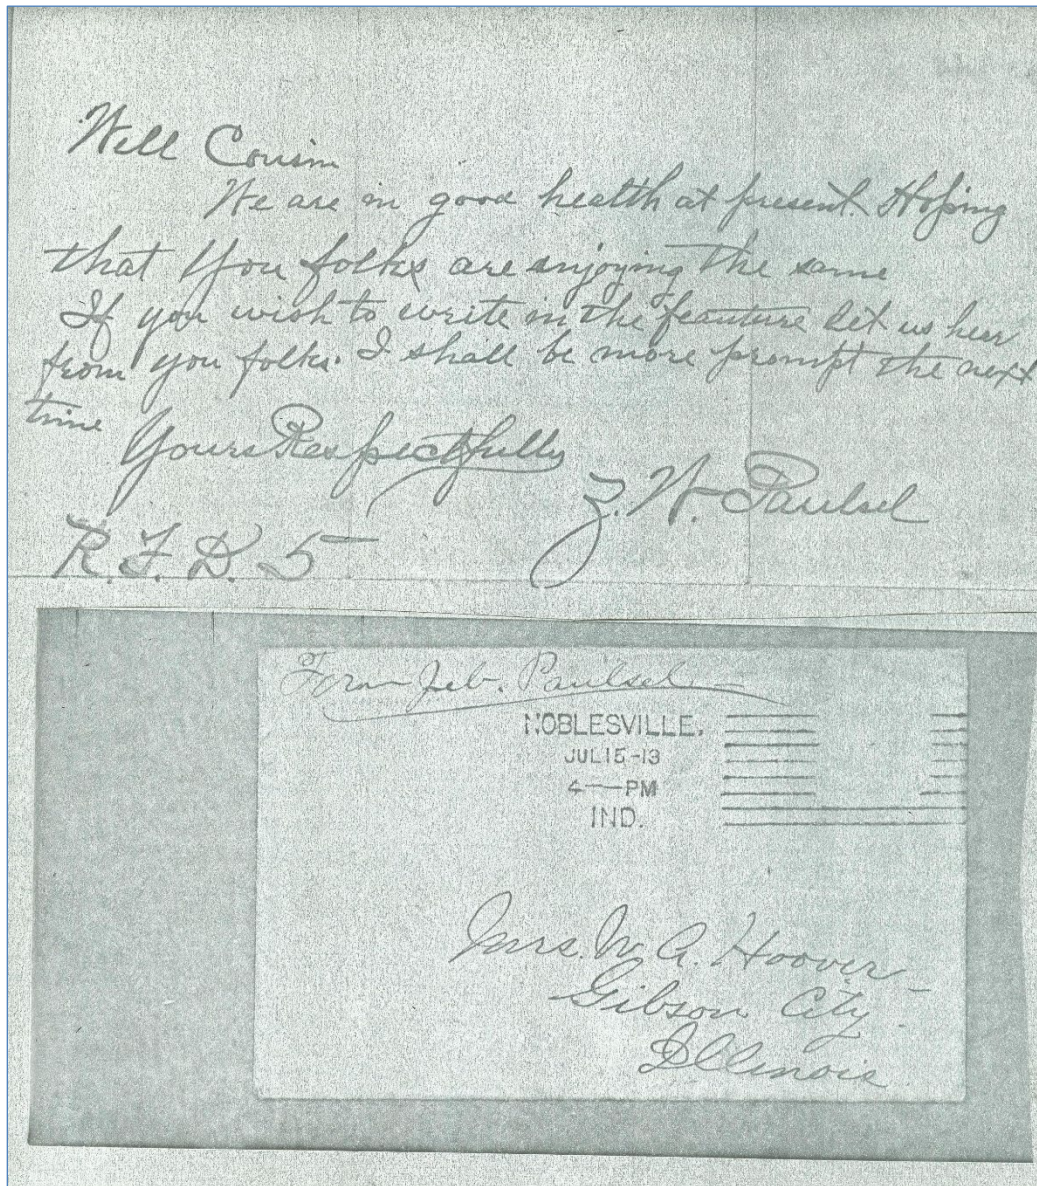 Well Cousin
We are in good health at present. Hoping
that you folks are enjoying the same
If you wish to write in the feauture let us hear
from you folks. I shall be more prompt the next
time Yours Respectfully
Z. W. Paulsel
R. F. D. 5
From Zeb. Paulsel
NOBLESVILLE.
JUL 15 -13
4 — PM
IND.
Mrs. W. A. Hoover
Gibson City
Illinois